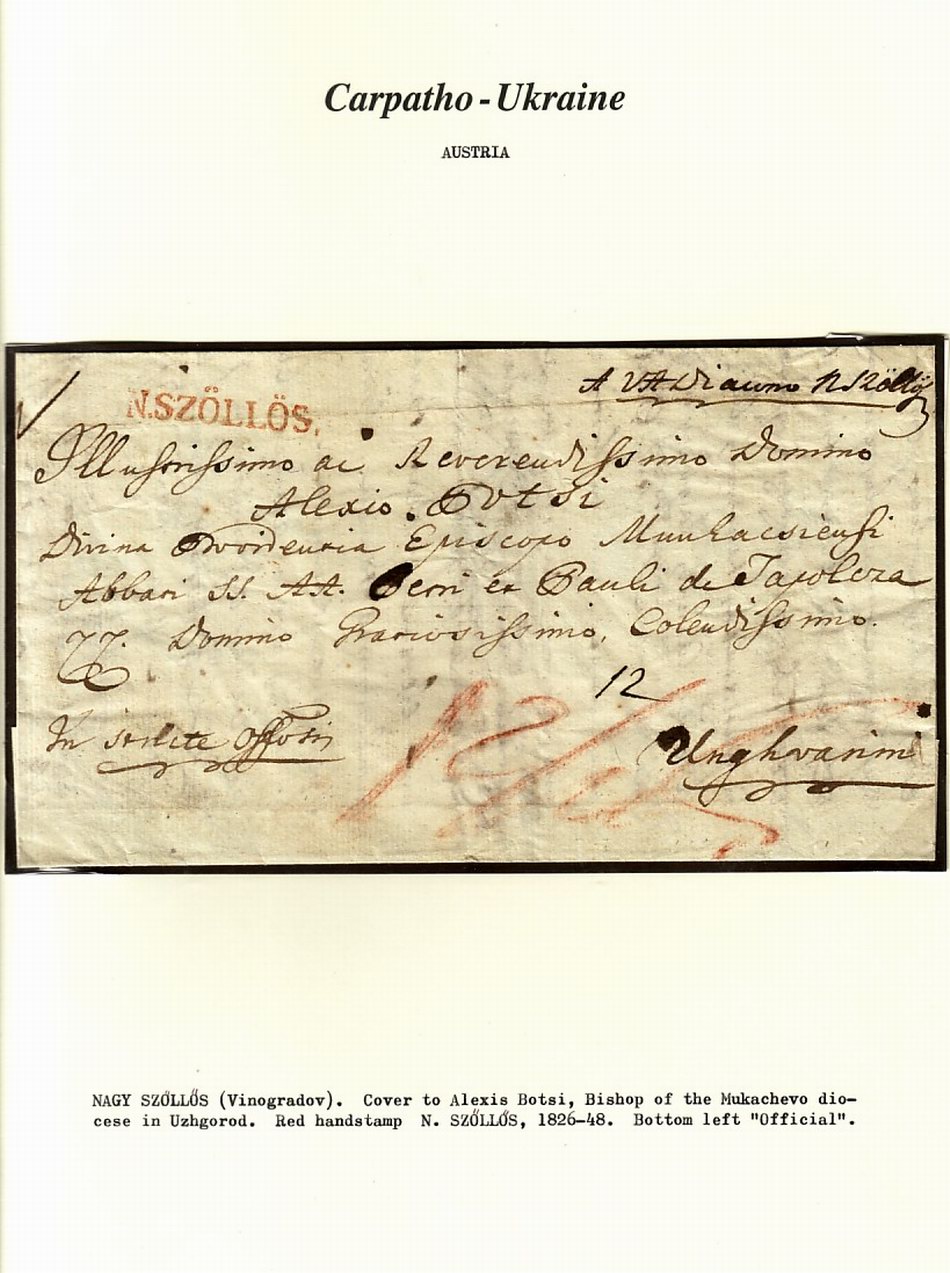 Carpatho-Ukraine
AUSTRIA
A VADiacono N Szöllős
N.SZŐLLÖS.
Illustrissimo ac Reverendissimo Domino
Alexio Potsi
Divina Providentia Episcopo Munkacsiensi
Abbati SS. AA. Petri et Pauli de Tapolcza
Domino Gratiosissimo, Colendissimo.
12
In
Unghvarini
NAGY SZŐLLŐS (Vinogradov). Cover to Alexis Botsi, Bishop of the Mukachevo dio-
cese in Uzhgorod. Red handstamp N. SZŐLLŐS, 1826-48. Bottom left "Official".